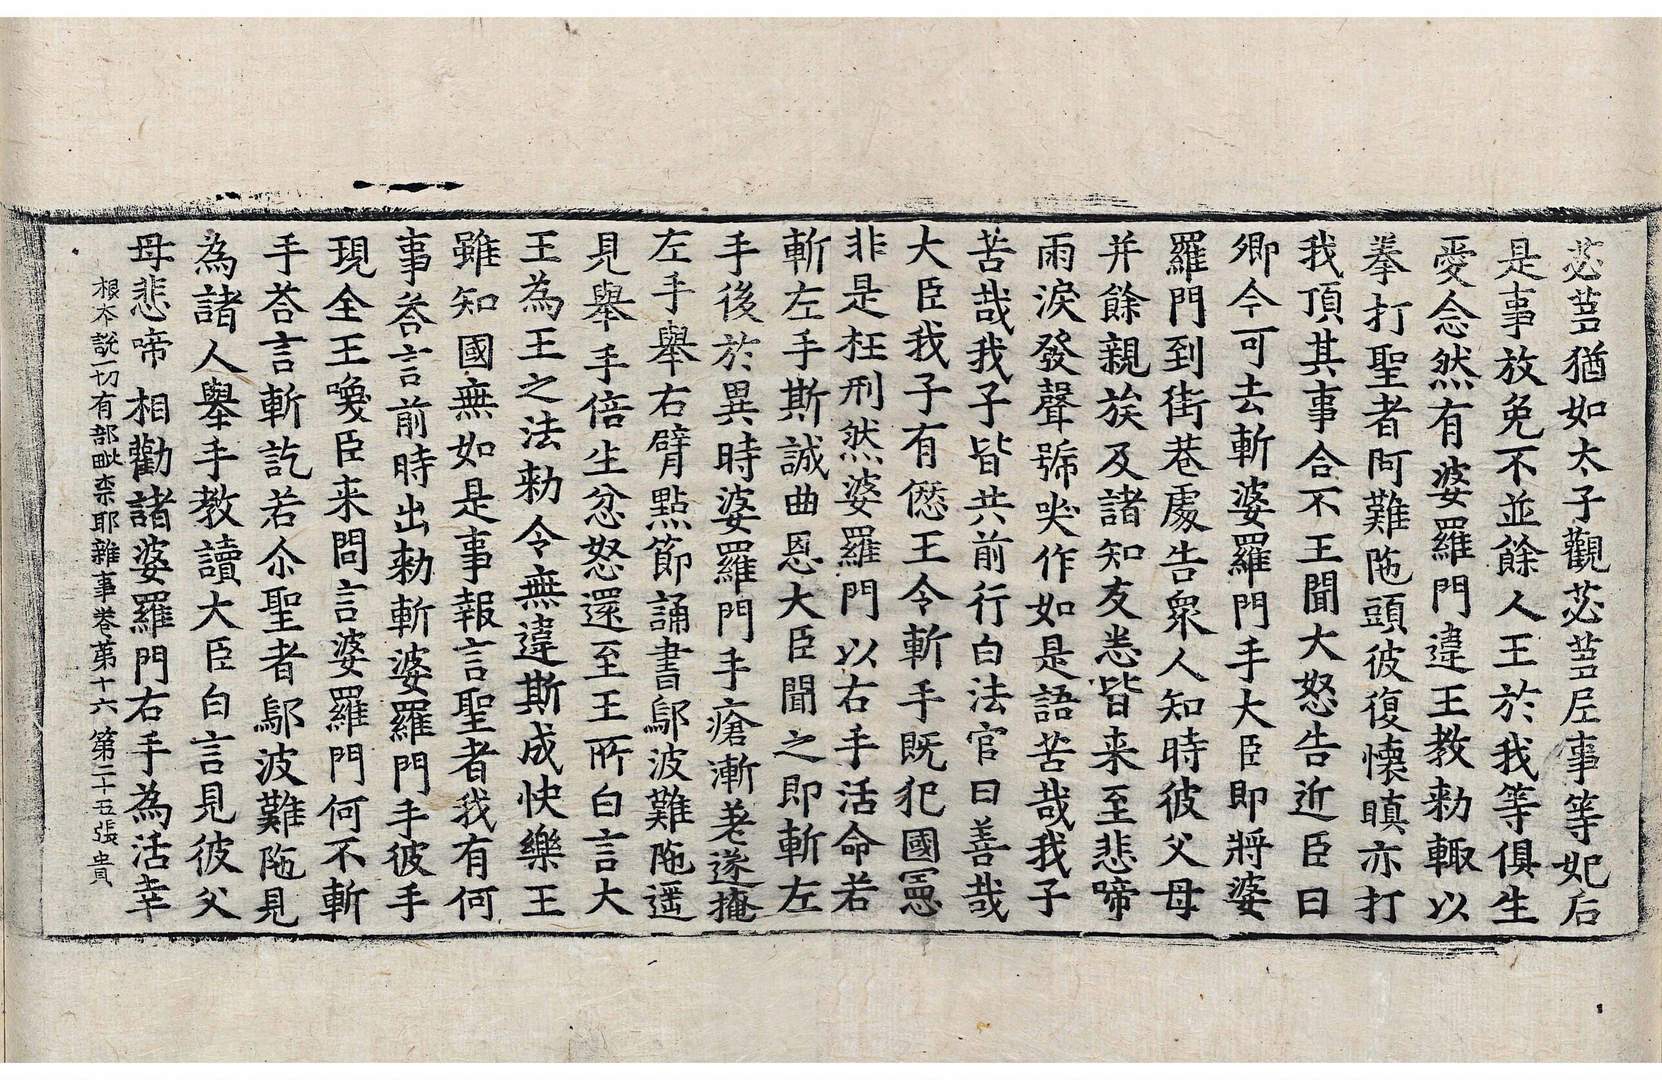 苾蒭猶如太子觀苾蒭尼事等妃后
是事放免不並餘人王於我等俱生
愛念然有婆羅門違王教勑輙以
拳打聖者阿難陁頭彼復懷瞋亦打
我頂其事合不王聞大怒告近臣曰
卿今可去斬婆羅門手大臣即將婆
羅門到街巷處告衆人知時彼父母
并餘親族及諸知友悉皆来至悲啼
雨淚發聲號哭作如是語苦哉我子
苦哉我子皆共前行白法官曰善哉
大臣我子有𠎝王令斬手既犯國憲
非是枉刑然婆羅門以右手活命若
斬左手斯誠曲恩大臣聞之即斬左
手後於異時婆羅門手瘡漸老遂掩
左手舉右臂點節誦書鄔波難陁遥
見舉手倍生忿怒還至王所白言大
王為王之法勑令無違斯成快樂王
雖知國無如是事報言聖者我有何
事荅言前時出勑斬婆羅門手彼手
現全王喚臣来問言婆羅門何不斬
手荅言斬訖若尒聖者鄔波難陁見
為諸人舉手教讀大臣白言見彼父
母悲啼相勸諸婆羅門右手為活幸
根本説一切有部毗柰耶雜事卷第十六 第二十五張 貴